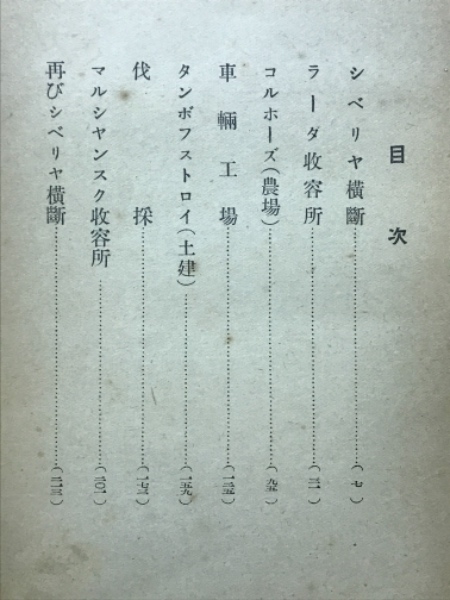 目次
シベリヤ橫斷……………………(七)
ラーダ收容所……………………(三一)
コルホーズ(農場)……………………(九五)
車輛工場……………………(一三五)
タンボフストロイ(土建)……………………(一五九)
伐採……………………(一七三)
マルシヤンスク收容所……………………(二〇一)
再びシベリヤ橫斷……………………(二一三)